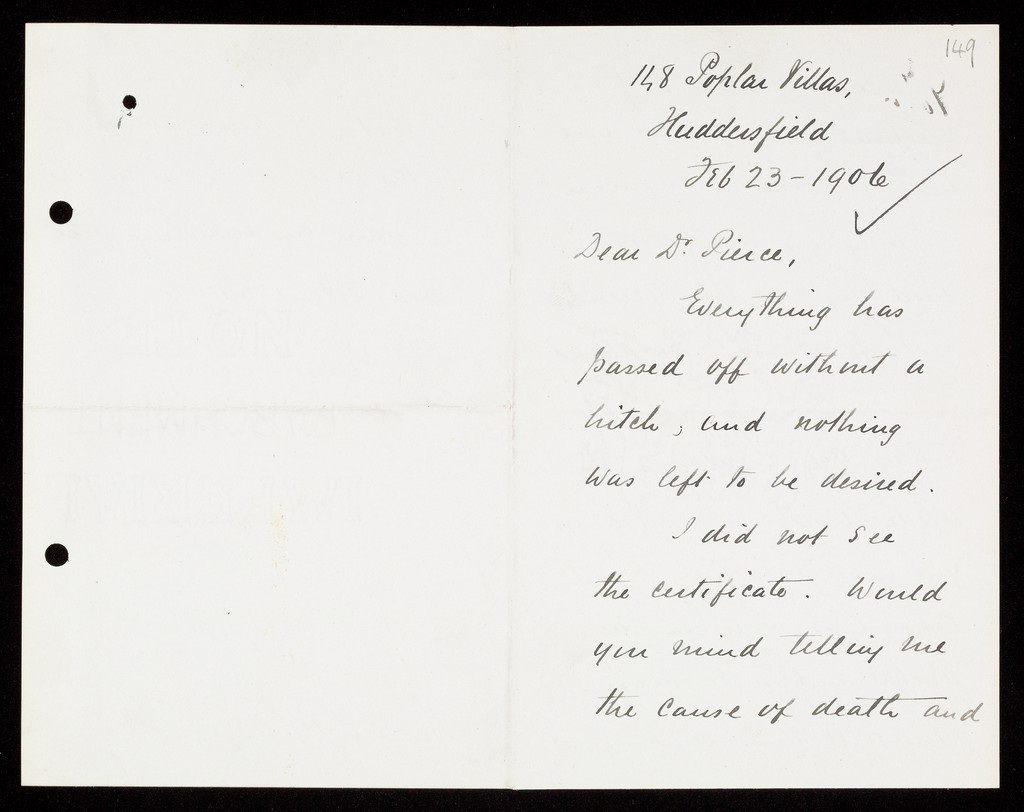 149
148 Poplar Villas,
Huddersfield
Feb 23 - 1906
Dear Dr. Pierce,
Everything has
passed off without a
hitch, and nothing
was left to be desired.
I did not see
the certificate. Would
you mind telling me
the cause of death and